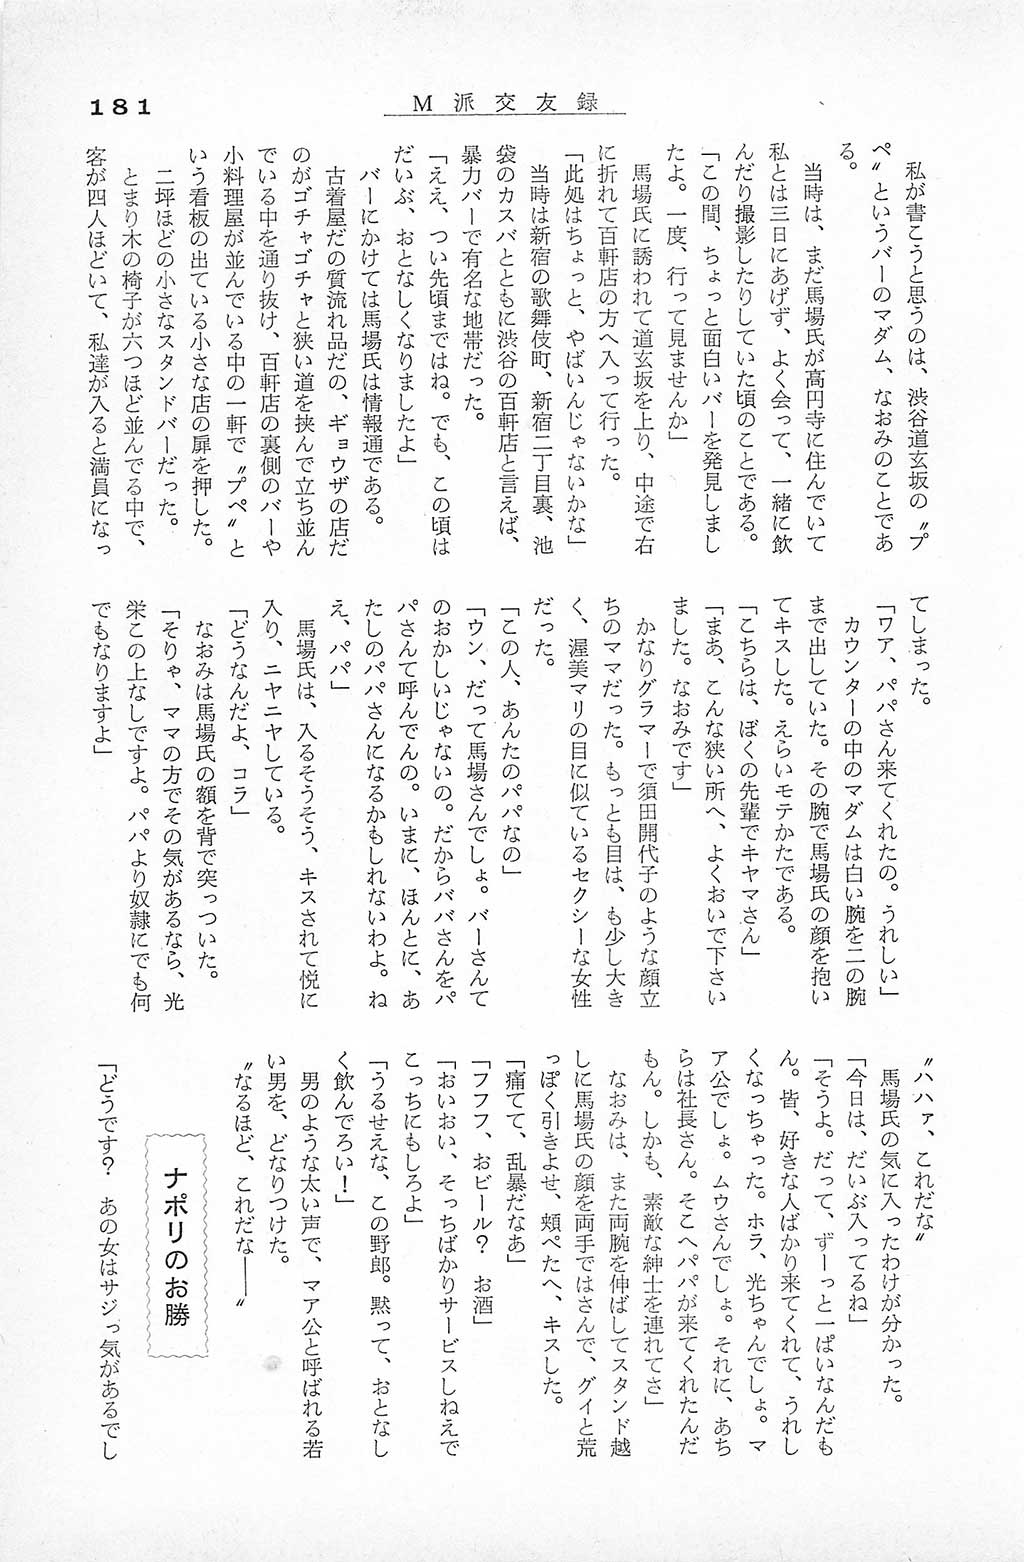 181
M派交友録
私が書こうと思うのは、渋谷道玄坂の〝プ
ペ〟というバーのマダム、なおみのことであ
る。
当時は、まだ馬場氏が高円寺に住んでいて
私とは三日にあげず、よく会って、一緒に飲
んだり撮影したりしていた頃のことである。
「この間、ちょっと面白いバーを発見しまし
たよ。一度、行って見ませんか」
馬場氏に誘われて道玄坂を上り、中途で右
に折れて百軒店の方へ入って行った。
「此処はちょっと、やばいんじゃないかな」
当時は新宿の歌舞伎町、新宿二丁目裏、池
袋のカスバとともに渋谷の百軒店と言えば、
暴力バーで有名な地帯だった。
「ええ、つい先頃まではね。でも、この頃は
だいぶ、おとなしくなりましたよ」
バーにかけては馬場氏は情報通である。
古着屋だの質流れ品だの、ギョウザの店だ
のがゴチャゴチャと狭い道を挟んで立ち並ん
でいる中を通り抜け、百軒店の裏側のバーや
小料理屋が並んでいる中の一軒で〝プペ〟と
いう看板の出ている小さな店の扉を押した。
二坪ほどの小さなスタンドバーだった。
とまり木の椅子が六つほど並んでる中で、
客が四人ほどいて、私達が入ると満員になっ
てしまった。
「ワア、パパさん来てくれたの。うれしい」
カウンターの中のマダムは白い腕を二の腕
まで出していた。その腕で馬場氏の顔を抱い
てキスした。えらいモテかたである。
「こちらは、ぼくの先輩でキヤマさん」
「まあ、こんな狭い所へ、よくおいで下さい
ました。なおみです」
かなりグラマーで須田開代子のような顔立
ちのママだった。もっとも目は、も少し大き
く、渥美マリの目に似ているセクシーな女性
だった。
「この人、あんたのパパなの」
「ウン、だって馬場さんでしょ。バーさんて
のおかしいじゃないの。だからババさんをパ
パさんて呼んでんの。いまに、ほんとに、あ
たしのパパさんになるかもしれないわよ。ね
え、パパ」
馬場氏は、入るそうそう、キスされて悦に
入り、ニヤニヤしている。
「どうなんだよ、コラ」
なおみは馬場氏の額を背で突っついた。
「そりゃ、ママの方でその気があるなら、光
栄この上なしですよ。パパより奴隷にでも何
でもなりますよ」
〝ハハァ、これだな〟
馬場氏の気に入ったわけが分かった。
「今日は、だいぶ入ってるね」
「そうよ。だって、ずーっと一ぱいなんだも
ん。皆、好きな人ばかり来てくれて、うれし
くなっちゃった。ホラ、光ちゃんでしょ。マ
ア公でしょ。ムウさんでしょ。それに、あち
らは社長さん。そこへパパが来てくれたんだ
もん。しかも、素敵な紳士を連れてさ」
なおみは、また両腕を伸ばしてスタンド越
しに馬場氏の顔を両手ではさんで、グイと荒
っぽく引きよせ、頬ぺたへ、キスした。
「痛てて、乱暴だなあ」
「フフフ、おビール？　お酒」
「おいおい、そっちばかりサービスしねえで
こっちにもしろよ」
「うるせえな、この野郎。黙って、おとなし
く飲んでろい！」
男のような太い声で、マア公と呼ばれる若
い男を、どなりつけた。
〝なるほど、これだな――〟
ナポリのお勝
「どうです？　あの女はサジっ気があるでし